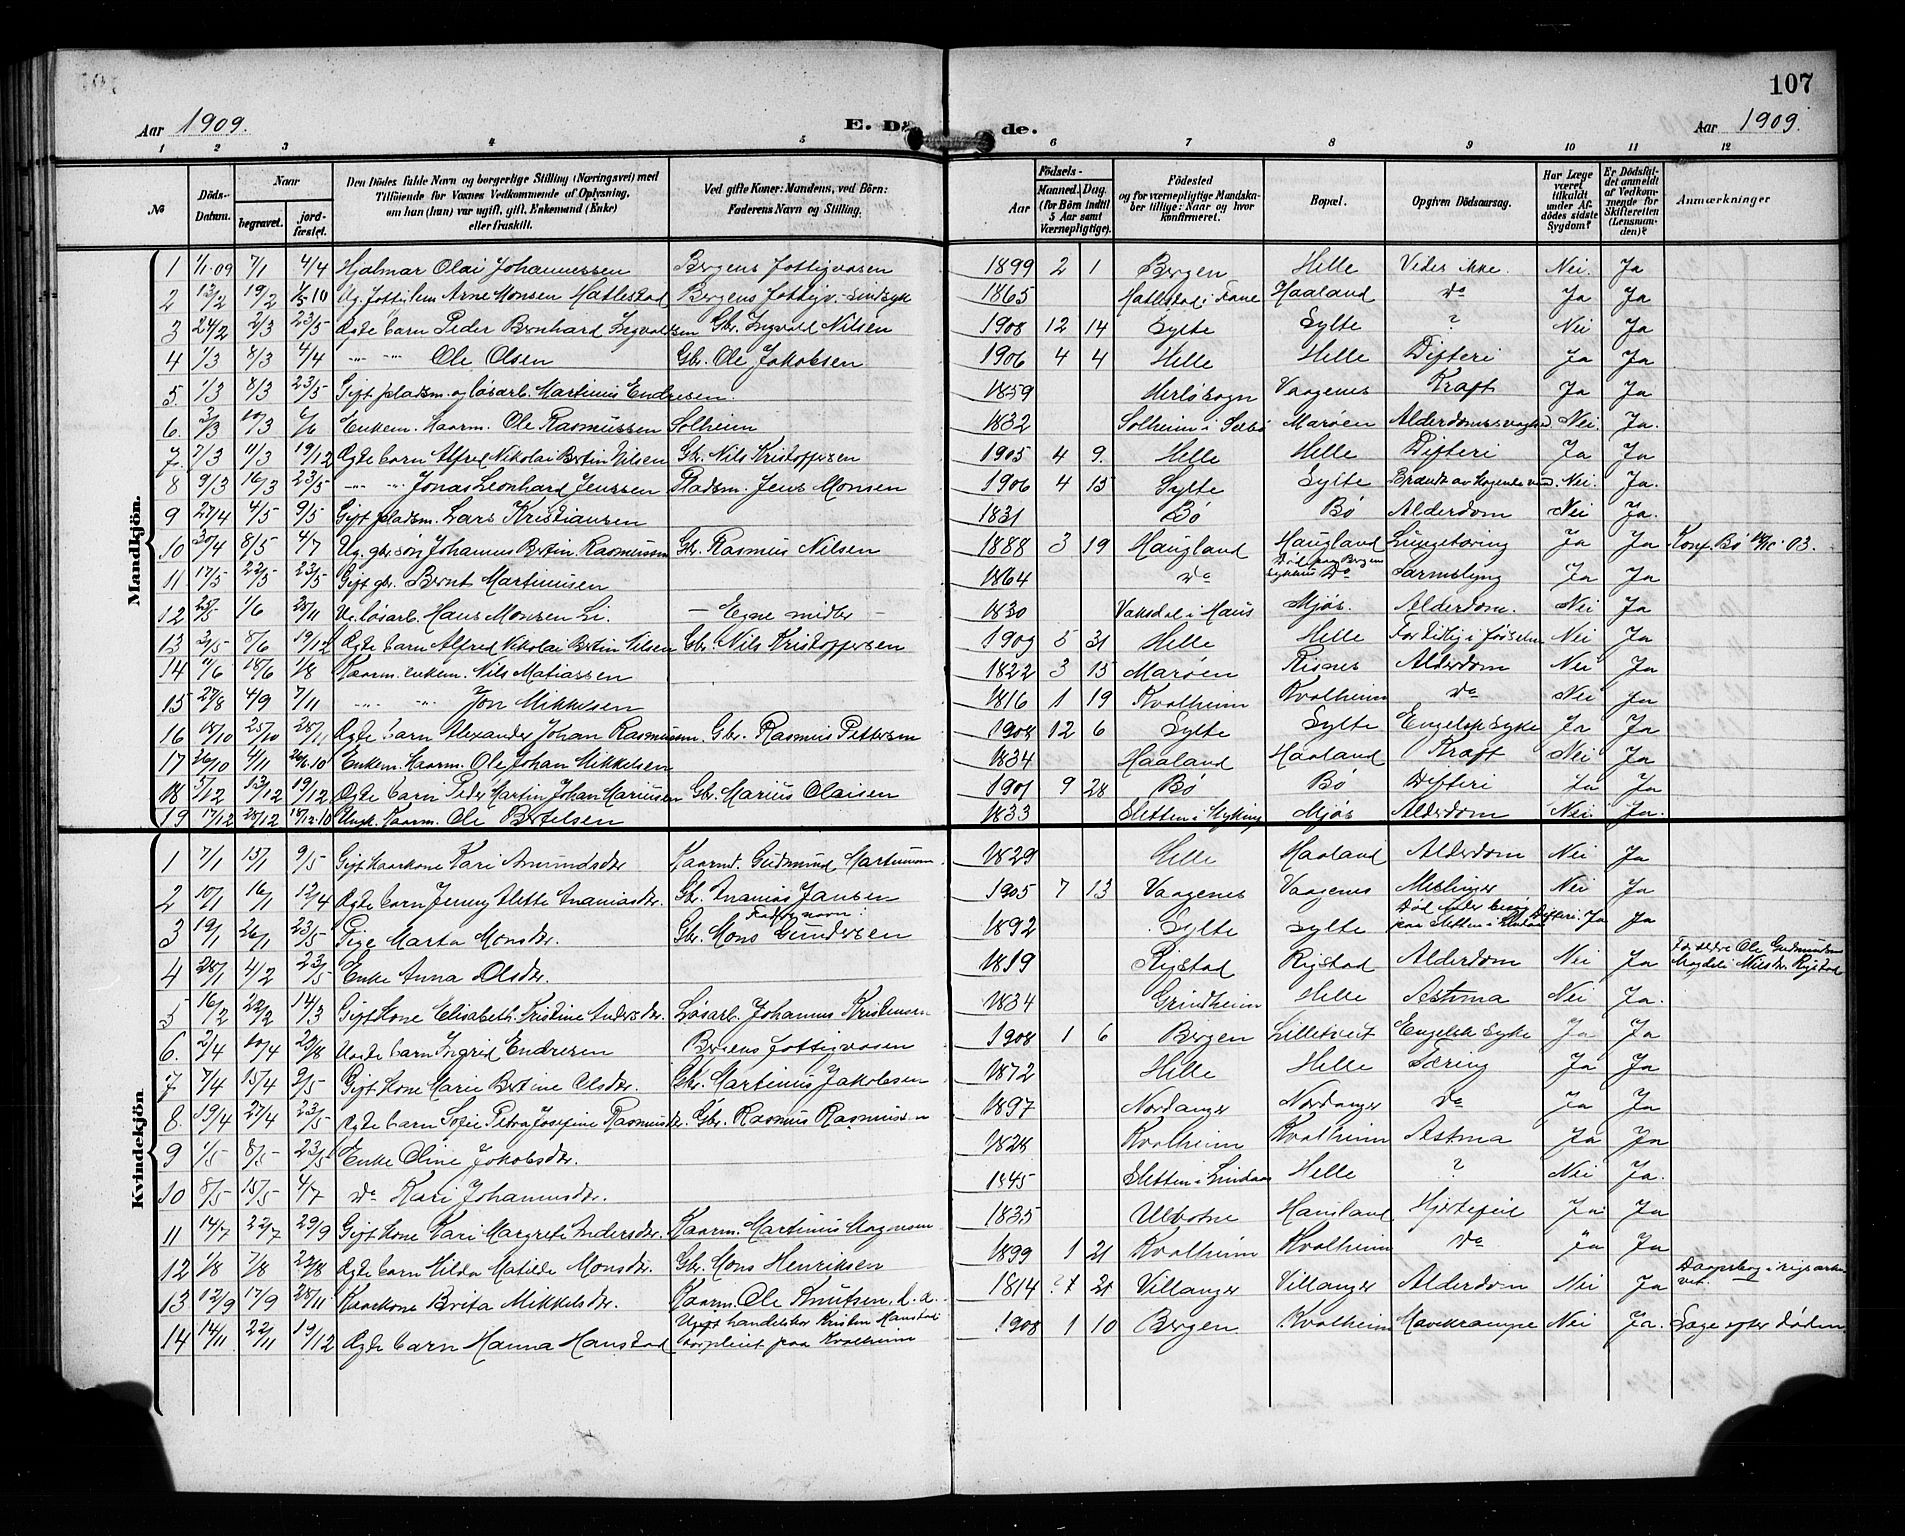 107
Aar 1909. E. Dø de. Aar 1909.
1 2 3 4 5 6 7 8 9 10 11 12
No
Döds-Datum.
Naar
begravet.
jord-fæstet.
Den Dödes fulde Navn og borgerlige Stilling (Næringsvei) med
Tilföiende for Voxnes Vedkommende af Oplysning,
om han (hun) var ugift, gift, Enkemand (Enke)
eller fraskilt.
Ved gifte Koner: Mandens, ved Börn:
Faderens Navn og Stilling.
Födsels-
Aar
Maaned. Dag.
(for Börn indtil
5 Aar samt
Værnepligtige).
Födested
og for værnepligtige Mandska-
ber tillige: Naar og hvor
konfirmeret.
Bopæl.
Opgiven Dödsaarsag.
Har Læge
været
tilkaldt
under Af-
dödes sidste
Sygdom?
Er Dödsfal-
det anmeldt
af Vedkom-
mende for
Skifteretten
(Lensman-
den)?
Anmærkninger
Mandkjön.
1 1/1-09 7/1 4/4 Hjalmar Olai Johannessen Bergens fattigvæsen 1899 2 1 Bergen Helle Vides ikke. Nei. Ja
2 13/2 19/2 1/5 10 Ug. fattiglem Arne Monsen Hatlestad Bergens fattigv. - sindsyk 1865 Hatlestad i Fane Haaland Do Ja Ja
3 24/2 2/3 23/5 Ægte barn Peder Bernhard Ingvaldsen Gbr. Ingvald Nilsen 1908 12 14 Sylte Sylte ? Nei Ja
4 1/3 8/3 4/4 " " Ole Olsen Gbr. Ole Jakobsen 1906 4 4 Helle Helle Difteri Ja Ja
5 1/3 8/3 23/5 Gift pladsm. og løsarb. Martinus Endresen. 1859 Herløsogn Vaagenes Kræft Ja Ja
6. 3/3 10/3 6/6 Enkem. Kaarm. Ole Rasmussen Solheim 1832 Solheim i Sæbø Marøen Alderdomssvaghed Nei. Ja.
7. 7/3 11/3 19/12 Ægte barn Alfred Nikolai Bertin Nilsen Gbr. Nils Kristoffersen 1905 4 9. Helle Helle Difteri Ja Ja
8 9/3 16/3 23/5 " " Jonas Leonhard Jenssen Pladsm. Jens Monsen 1906 4 15 Sylte Sylte Brændt av kogende vand Nei. Ja.
9 27/4 4/5 9/5 Gift pladsm. Lars Kristiansen 1831 Bø Bø Alderdom Nei Ja.
10 30/4 8/5 4/7 Ug. gbr.søn Johannes Bertin Rasmussen Gbr. Rasmus Nilsen 1888 3 19 Haugland Haugland Lungetæring Ja Ja Konf. Bø 03.
11 17/5 22/5 23/5 Gift gbr. Bernt Martinusen 1864 Do Død paa Bergens sykehus Do Tarmslyng Ja Ja
12 25/5 1/6 28/11 Ug. løsarb. Hans Monsen Li. - Egne midler - 1830 Vaksdal i Haus Mjøs. Alderdom. Nei Ja
13 31/5 8/6 19/12 Ægte barn Alfred Nikolai Bertin Nilsen Gbr. Nils Kristoffersen 1909 5 31 Helle Helle For tidlig i fødselen Nei Ja
14 11/6 18/6 1/8 Kaarm. enkem. Nils Matiassen 1822 3 15 Marøen Risnes Alderdom Nei Ja
15 27/8 4/9 7/11 " " Jon Mikkelsen 1816 1 19 Kvalheim Kvalheim Do Nei Ja
16 18/10 25/10 28/11 Ægte barn Alexander Johan Rasmussen. Gbr. Rasmus Pettersen 1908 12 6 Sylte Sylte Engelsk syke Ja Ja
17 26/10 4/11 Enkem. Kaarm. Ole Johan Mikkelsen 1834 Haaland Haaland Kræft Nei Ja
18 5/12 13/12 19/12 Ægte barn Peder Martin Johan Mariusen Gbr. Marius Olaisen 1901 9 28 Bø Bø Difteri Ja Ja
19 17/12 28/12 Kaarm. Ole Bertelsen 1833 Sletten i Mjøs Alderdom Nei. Ja.
Kvindekjön
1 7/1 15/1 9/5 Gift kaarkone Kari Amundsdtr Kaarmd. Gudmund Martinusen. 1829 Helle Haaland Alderdom Nei Ja
2 10/1 16/1 12/4 Ægte barn Jenny Alette Ananiasdtr. Gbr. Ananias Jansen 1905 7 13 Vaagenes Vaagenes Meslinger Nei Ja
3 19/1 26/1 23/5 Pige Marta Monsdtr. Faders navn: Gbr. Mons Gundersen 1892 Sylte Sylte Død under besøg paa Sletten i Lindaas Difteri. Ja Ja
4 28/1 4/2 23/5 Enke Anna Olsdtr. 1819 Rystad Rigstad Alderdom Nei Ja Forældre Ole Gudmundsen Magdeli Nilsdtr. Rystad
5 16/2 22/2 14/3 Gift kone Elisabeth Kristine Andersdtr. Løsarb. Johannes Kristensen 1834 Grindheim Helle Astma Nei Ja.
6. 2/4 10/4 22/8 Uægte barn Ingrid Endresen Bergens fattigvæsen 1908 1 6 Bergen Lilletveit Engelsk syke Ja Ja
7 7/4 15/4 9/5 Gift kone Marie Bertine Olsdtr. Gbr. Martinus Jakobsen 1872 Helle Helle Tæring Ja Ja
8. 19/4 27/4 23/5 Ægte barn Sofie Petra Josefine Rasmusdtr. Gbr. Rasmus Rasmussen 1897 Nordanger Nordanger Do Ja Ja
9 1/5 8/5 23/5 Enke Oline Jakobsdtr. 1828 Kvalheim Kvalheim Astma Ja Ja
10 8/5 15/5 4/7 Do Kari Johannesdtr. 1845 Sletten i Lindaas Helle ? Nei Ja.
11 14/7 22/7 29/9 Gift kone Kari Margrete Andersdtr. Kaarm. Martinus Mogensen 1835 Ulvatne Haugland Hjertefeil Ja Ja
12 1/8 7/8 22/8 Ægte barn Hilda Matilde Monsdtr. Gbr. Mons Henriksen 1899 1 21 Kvalheim Kvalheim Do Ja Ja
13 12/9 17/9 28/11 Kaarkone Brita Mikkelsdtr. Kaarm. Ole Knutsen, 1814 ? 21 Villanger Villanger Alderdom Nei Ja Daapsbog i rigsarkivet.
14 14/11 22/11 19/12 Ægte barn Hanna Hanstad Ugift handelsbet. Kristen Hanstad bortpleiet paa Kvalheim 1908 1 10 Bergen Kvalheim Mavekrampe Nei Ja. Læge efter døden